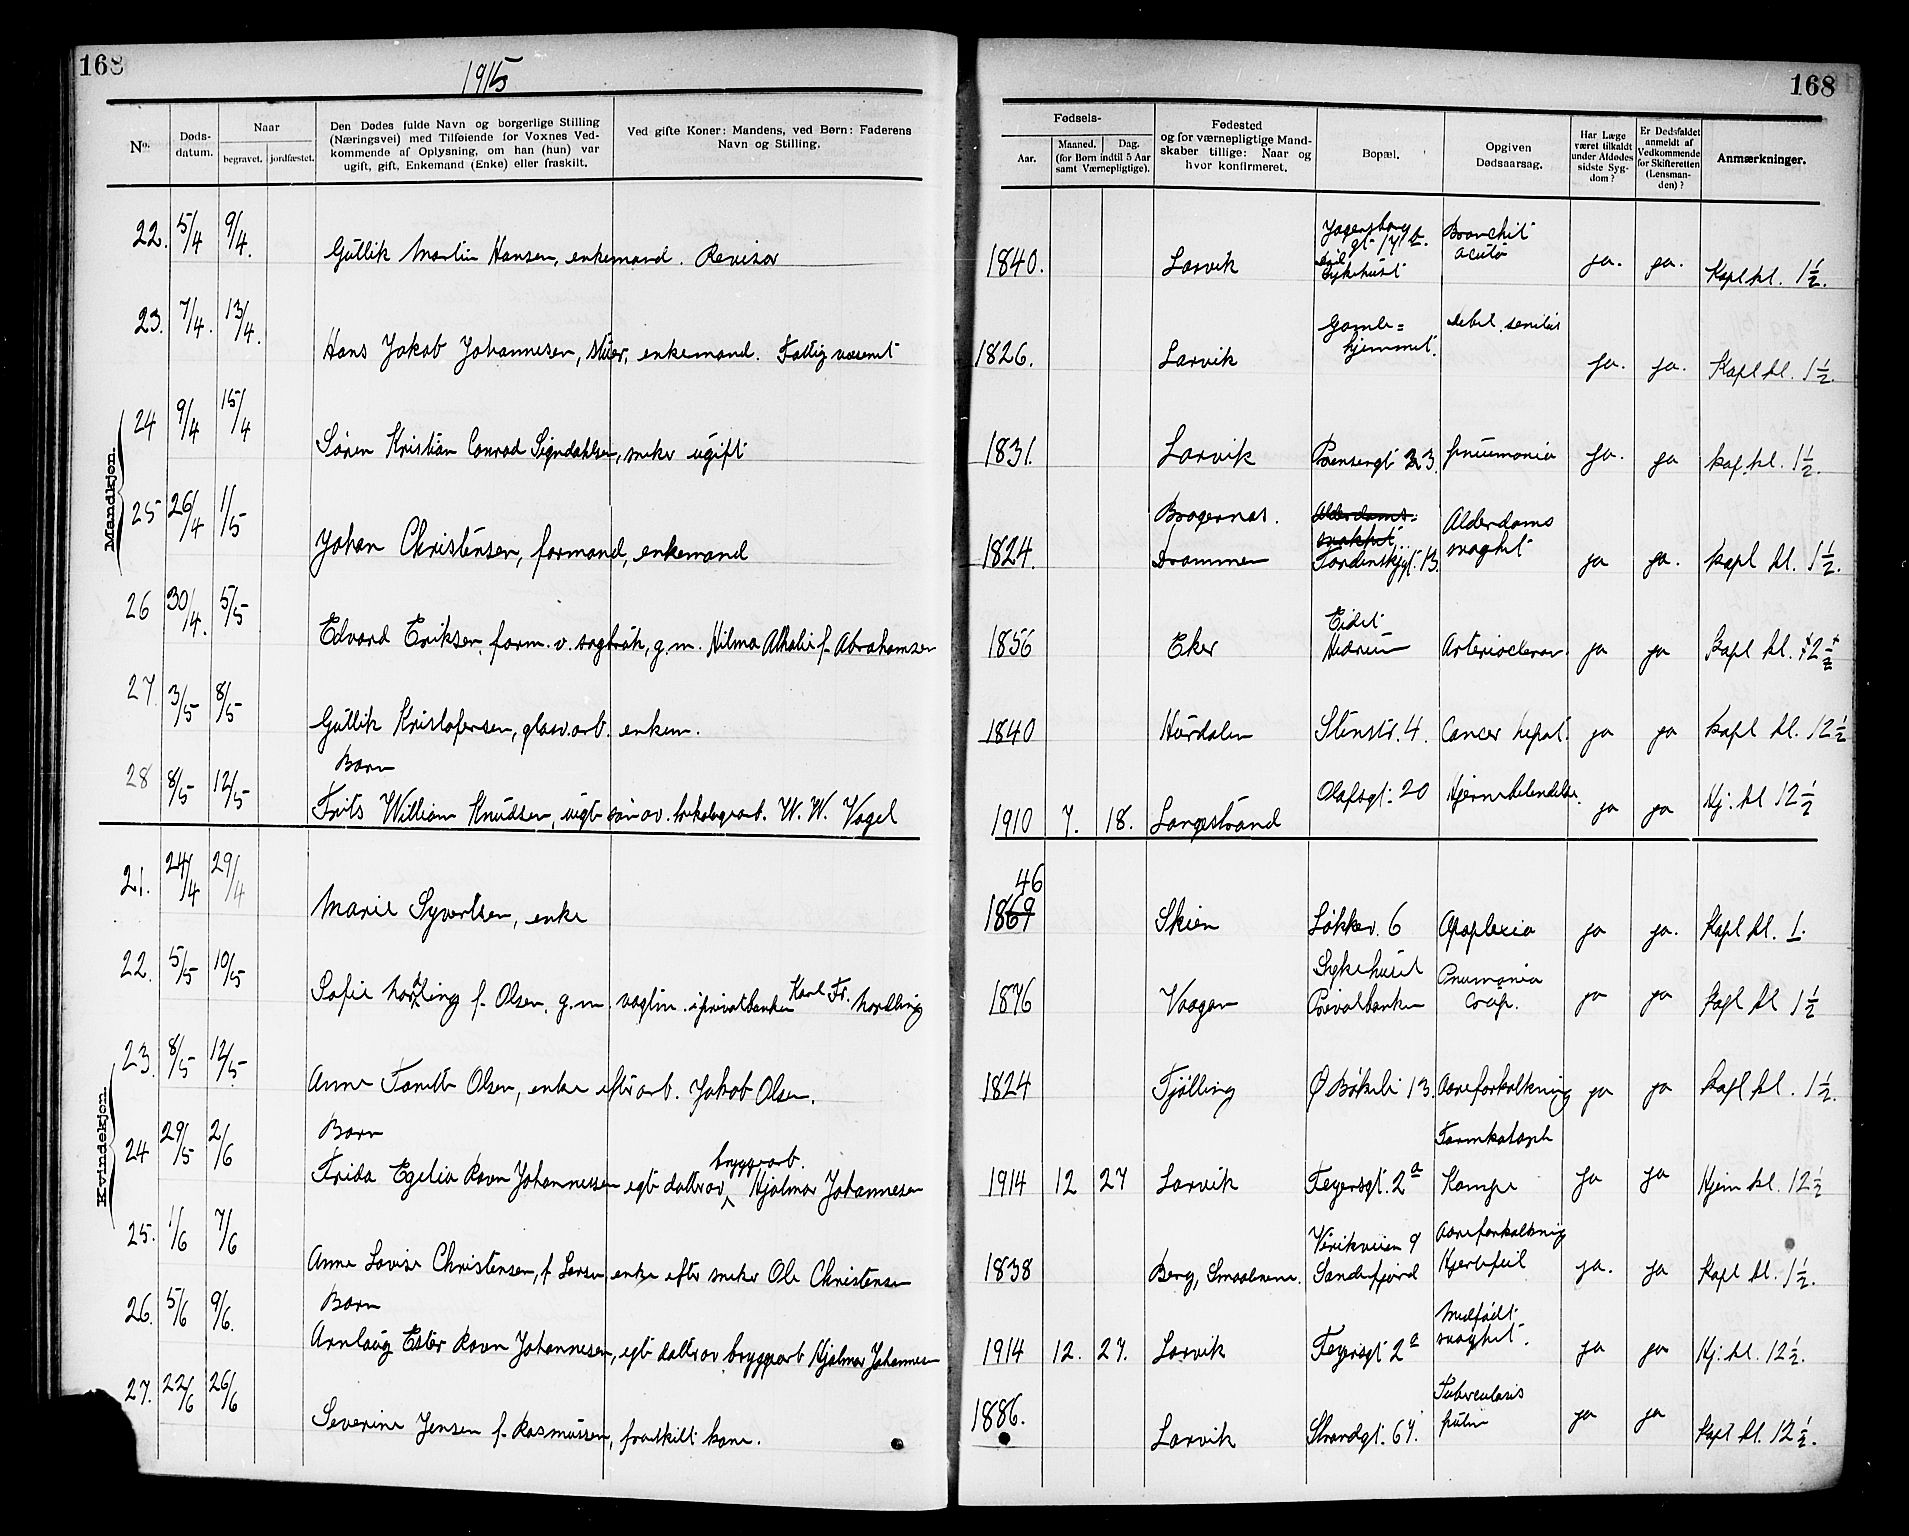 168
1915
168
No.
Døds-
datum.
Naar
begravet. jordfæstet.
Den Dødes fulde Navn og borgerlige Stilling
(Næringsvei) med Tilføiende for Voxnes Ved-
kommende af Oplysning, om han (hun) var
ugift, gift, Enkemand (Enke) eller fraskilt.
Ved gifte Koner: Mandens, ved Børn: Faderens
Navn og Stilling.
Fødsels-
Aar.
Maaned. Dag.
(for Børn indtil 5 Aar
samt Værnepligtige).
Fødested
og for værnepligtige Mand-
skaber tillige: Naar og
hvor konfirmeret.
Bopæl.
Opgiven
Dødsaarsag.
Har Læge
været tilkaldt
under Afdødes
sidste Syg-
dom?
Er Dødsfaldet
anmeldt af
Vedkommende
for Skifteretten
(Lensman-
den)?
Anmærkninger.
Mandkjøn.
22. 5/4 9/4. Gullik Martin Hansen, enkemand. Revisor 1840. Larvik
Sykehuset
Bronchit
acuta
ja. ja. Kapl kl. 1½.
23. 7/4. 13/4. Hans Jakob Johannesen, stuer, enkemand. Fattigvæsenet 1826. Larvik
Gamle=
hjemmet.
Debil. senilis
ja. ja. Kapl kl. 1½.
24 9/4 15/4 Søren Kristian Conrad Signdahlsen, snekr ugift 1831. Larvik 23. pneumonia ja. ja kap. kl. 1½.
25 26/4 1/5 Johan Christensen, formand, enkemand 1824.
Bragernes.
Drammen
Alderdoms=
svakhet.
Tordenskjgt. 13.
Alderdoms
svaghet
ja ja. kapl kl. 1½.
26 30/4. 5/5 Edvard Eriksen, form. v. sagbruk, g.m. Hilma Athalie f. Abrahamsen 1856 Eker
Eidet
Hedrum
ja ja Kapl kl. 2½
27. 3/5 8/5 Gullik Kristofersen, glasv.arb. enkem. 1840 Hurdalen Stenstr. 4. Cancer hepat. ja ja kapl kl. 12½
Barn
28 8/5 12/5 Frits William Knudsen, uegte søn av W. W. Vogel 1910 7. 18. Langestrand Olafsgt. 20 Hjernebetendelse. ja ja Kj. kl 12½
Kvindekjøn.
21. 24/4 29/4 Marie Syvertsen, enke
46
1869 Skien Løkkev. 6 Apoplexia ja ja. Kapl kl. 1.
22. 5/5 10/5 Sofie Nordling f. Olsen, g.m. vagtm. i privatbanken Karl Fr. Nordling 1876 Vaagan
Sykehuset
Privatbanken
Pneumonia
Croup.
ja ja Kapl kl 1½
23. 8/5 12/5 Anne Tomette Olsen, enke efter arb. Jakob Olsen. 1824 Fjølling Ø Bøkeli 13. Aareforkalkning ja ja kapl kl. 1½.
Barn
24 29/5 2/6 Frida Egelia Ravn Johannessen egte datter av bryggearb. Hjalmar Johannesen 1914 12 27 Larvik Feyersgt. 2a
Tarmkatarh
Krampe
ja ja Hjem kl. 12½
25. 1/6 7/6 Anne Lovise Christensen, f. Larsen enke efter snekr Ole Christensen 1838 Berg, Smaalenene.
Verikveien 9
Sandefjord
Aareforkalkning
Hjertefeil
ja. ja Kapl kl. 1½.
Barn
26. 5/6 9/6. Arnlaug Ester Ravn Johannesen, egte datter av bryggearb Hjalmar Johannesen 1914 12. 27. Larvik Feyersgt 2a
Medfødt
svaghet.
ja ja Kj. kl. 12½.
27. 22/6 26/6 Severine Jensen f. Rasmussen, fraskilt kone. 1886. Larvik Strandgt. 67.
Tuberculosis
pulm
ja ja Kapl kl. 12½.